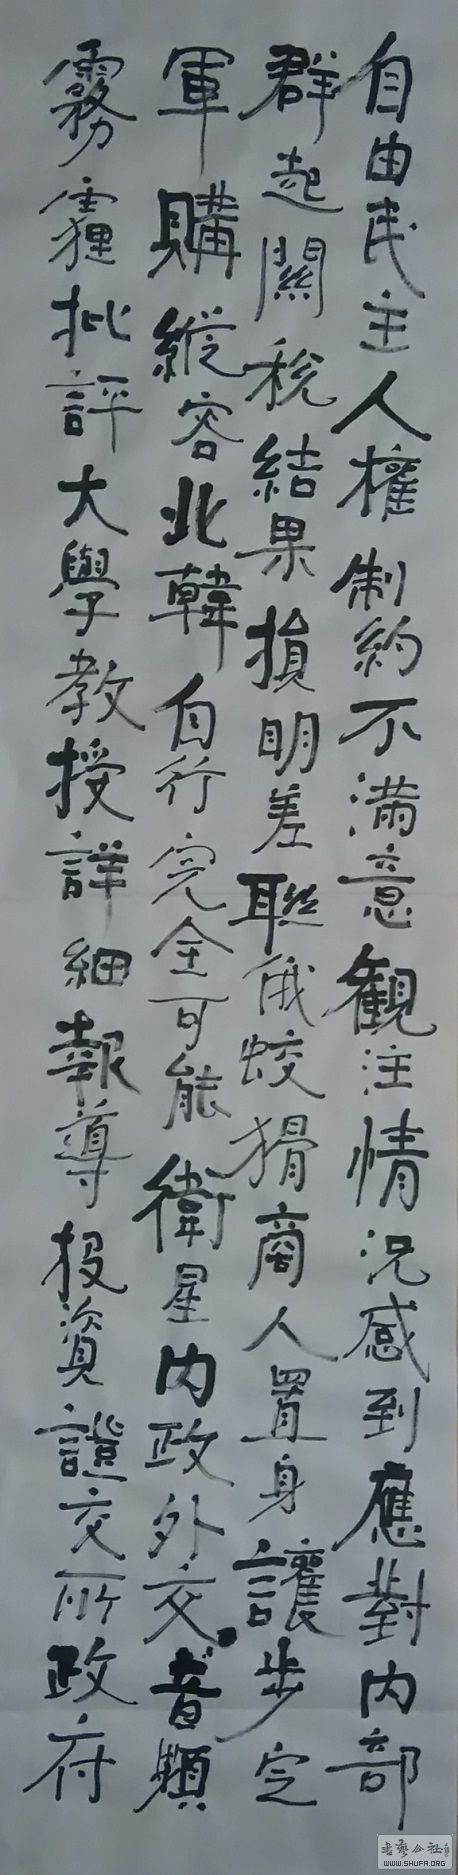 自由民主人權制約不滿意觀注情況感到應對內部
群起關稅結果損明差聯俄蛟猾商人置身讓步定
軍購縱容北韓自行完全可能衛星內政外交音類
霧霾批評大學教授詳細報導投資證交所政府
書藝公社
WWW.SHUFA.ORG